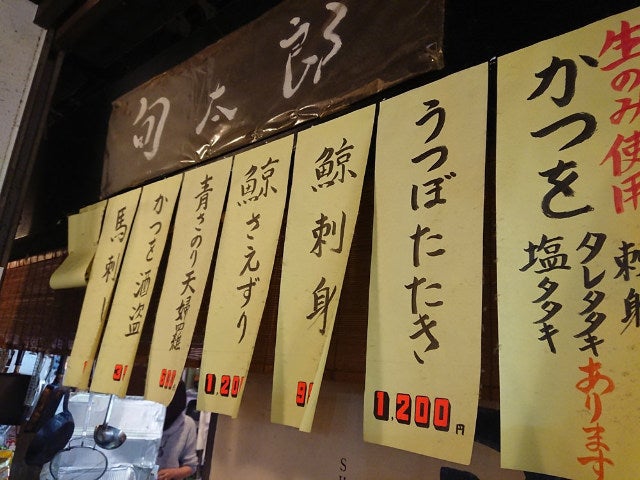 旬太郎
生のみ使用
かつを
刺身
タレタタキ
塩タタキ
あります
うつぼたたき
1,200円
鯨刺身
鯨さえずり
1,20
青さのり天婦羅
かつを酒盗
馬刺し